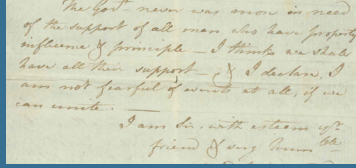 The Govt. never was more in need
of the support of all men who have property
influence & principle — I think we shall
have all their support — & I declare, I
am not fearful of events at all, if we
can unite. —
I am Sir, with esteem yr.
friend & very Hum ble